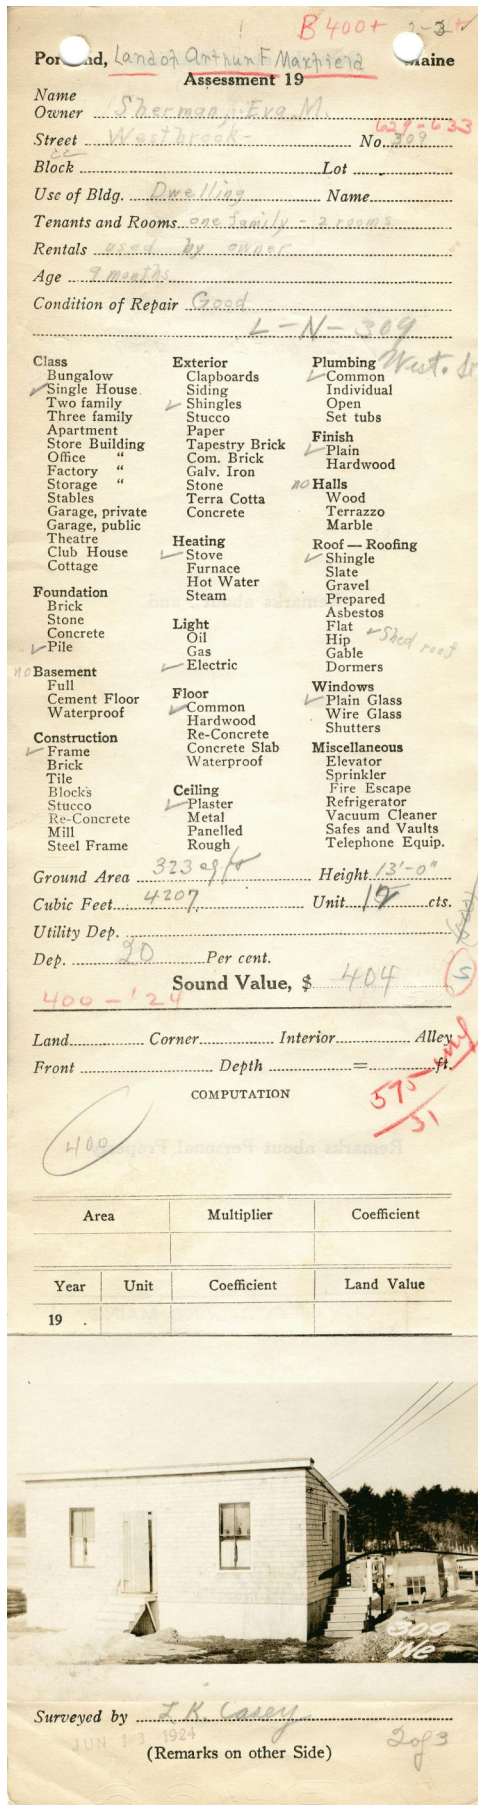 B 400+ 2-3
Portland, Land of Arthur F Maxfield Maine
Assessment 19
Name
Owner Sherman, Eva M.
629-633
Street Westbrook No. 309
Block Lot
Use of Bldg. Dwelling Name
Tenants and Rooms one family - 2 rooms
Rentals used by owner
Age 9 months
Condition of Repair Good
L-N-309
West. St
Class
Bungalow
✓ Single House.
Two family
Three family
Apartment
Store Building
Office "
Factory "
Storage "
Stables
Garage, private
Garage, public
Theatre
Club House
Cottage
Foundation
Brick
Stone
Concrete
✓ Pile
no Basement
Full
Cement Floor
Waterproof
Construction
✓ Frame
Brick
Tile
Blocks
Stucco
Re-Concrete
Mill
Steel Frame
Exterior
Clapboards
Siding
✓ Shingles
Stucco
Paper
Tapestry Brick
Com. Brick
Galv. Iron
Stone
Terra Cotta
Concrete
Heating
✓ Stove
Furnace
Hot Water
Steam
Light
Oil
Gas
✓ Electric
Floor
✓ Common
Hardwood
Re-Concrete
Concrete Slab
Waterproof
Ceiling
✓ Plaster
Metal
Panelled
Rough
Plumbing
✓ Common
Individual
Open
Set tubs
Finish
✓ Plain
Hardwood
no Halls
Wood
Terrazzo
Marble
Roof — Roofing
✓ Shingle
Slate
Gravel
Prepared
Asbestos
Flat
Hip ✓ Shed roof
Gable
Dormers
Windows
✓ Plain Glass
Wire Glass
Shutters
Miscellaneous
Elevator
Sprinkler
Fire Escape
Refrigerator
Vacuum Cleaner
Safes and Vaults
Telephone Equip.
Ground Area 323 sq ft Height 13'-0"
Cubic Feet 4207 Unit 12 cts.
Utility Dep.
Dep. 20 Per cent.
Sound Value, $ 404
400 - '24
Land Corner Interior Alley
Front Depth = ft.
575
31
COMPUTATION
400
Area Multiplier Coefficient
Year Unit Coefficient Land Value
19 .
309
We
Surveyed by L.K. Casey
JUN 13 1924
2 of 3
(Remarks on other Side)